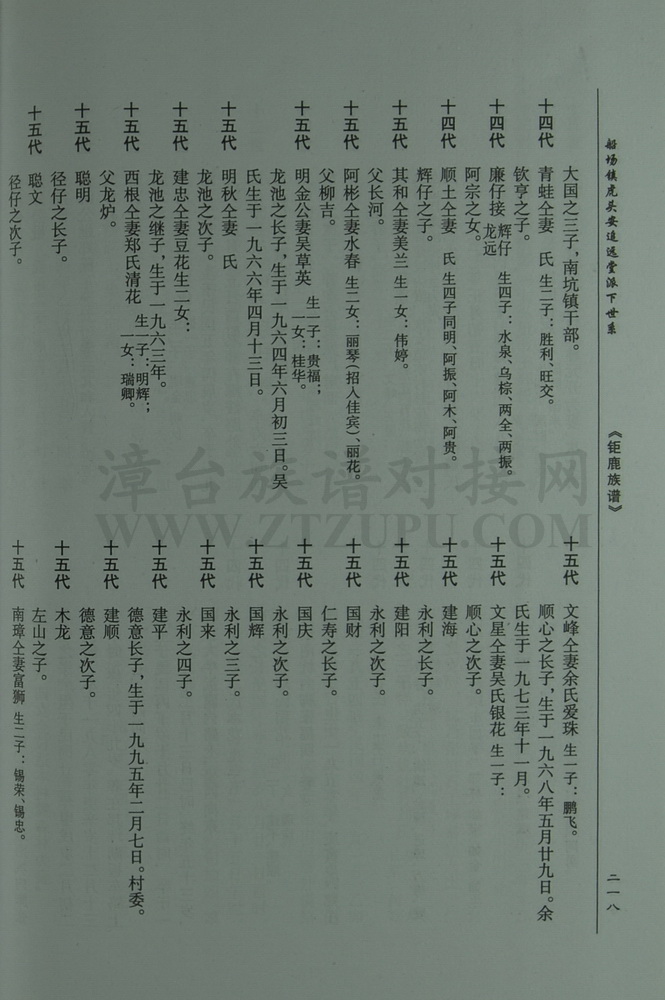 船场镇虎头安追远堂派下世系
《钜鹿族谱》
二一八
大国之三子，南坑镇干部。
十四代 青蛙仝妻 氏 生二子：胜利、旺交。
钦亨之子。
十四代 廉仔接 辉仔 龙远 生四子：水泉、乌棕、两全、两振。
阿宗之女。
十四代 顺土仝妻 氏 生四子同明、阿振、阿木、阿贵。
辉仔之子。
十五代 其和仝妻美兰 生一女：伟婷。
父长河。
十五代 阿彬仝妻水春 生二女：丽琴（招入佳宾）、丽花。
父柳吉。
十五代 明金公妻吴草英 生一子：贵福； 一女：桂华。
龙池之长子，生于一九六四年六月初三日。吴
氏生于一九六六年四月十三日。
十五代 明秋仝妻 氏
龙池之次子。
十五代 建忠仝妻豆花生二女：
龙池之继子，生于一九六三年。
十五代 西根仝妻郑氏清花 生一子：明辉； 一女：瑞卿。
父龙炉。
十五代 聪明
径仔之长子。
十五代 聪文
径仔之次子。
十五代 文峰仝妻余氏爱珠 生一子：鹏飞。
顺心之长子，生于一九六八年五月廿九日。余
氏生于一九七三年十一月。
十五代 文星仝妻吴氏银花 生一子：
顺心之次子。
十五代 建海
永利之长子。
十五代 建阳
永利之次子。
十五代 国财
仁寿之长子。
十五代 国庆
永利之次子。
十五代 国辉
永利之三子。
十五代 国来
永利之四子。
十五代 建平
德意长子，生于一九九五年二月七日。村委。
十五代 建顺
德意之次子。
十五代 木龙
左山之子。
十五代 南璋仝妻富狮 生二子：锡荣、锡忠。
漳台族谱对接网
WWW.ZTZUPU.COM